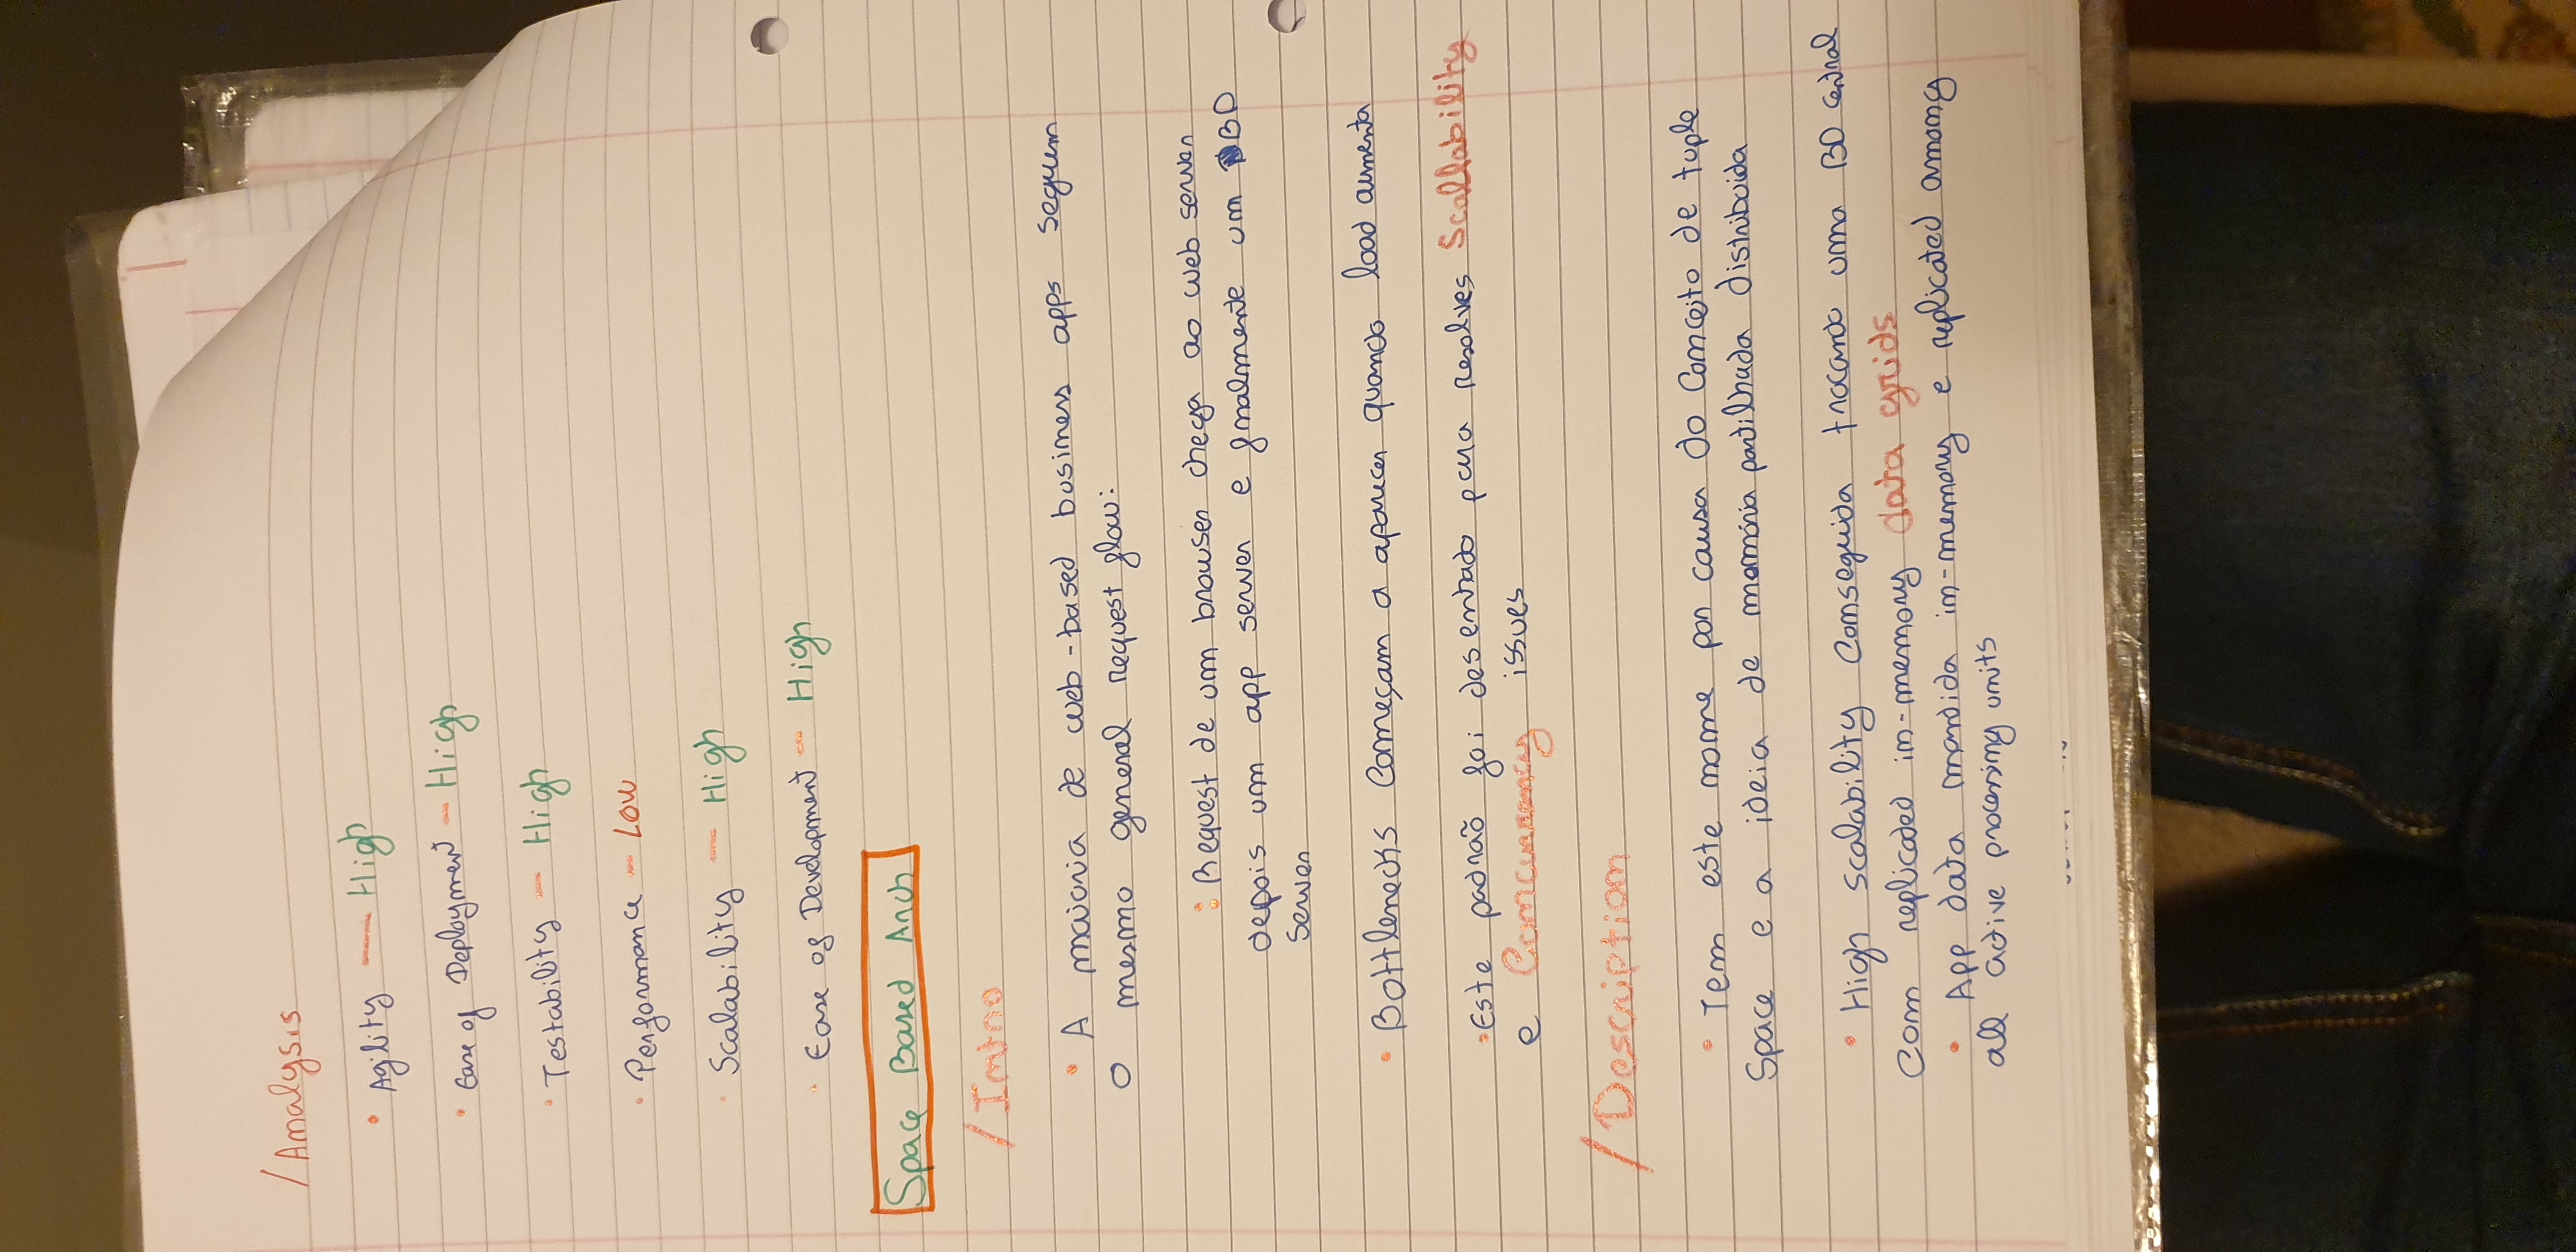 /Analysis
• Agility — High
• Ease of Deployment - High
• Testability - High
• Performance - Low
• Scalability - High
• Ease of Development - High
Space Based Arch
/Intro
• A maioria de web-based business apps seguem
o mesmo general request flow:
: Request de um browser chega ao web server
depois um app server e finalmente um BD
server
• Bottlenecks começam a aparecer quando load aumenta
• Este padrão foi desenhado para resolver Scallability
e Concurrency issues
/Description
• Tem este nome por causa do conceito de tuple
space e a ideia de memória partilhada distribuida
• High scalability conseguida trocando uma BD central
com replicated in-memory data grids
• App data mantida in-memory e replicated among
all active processing units